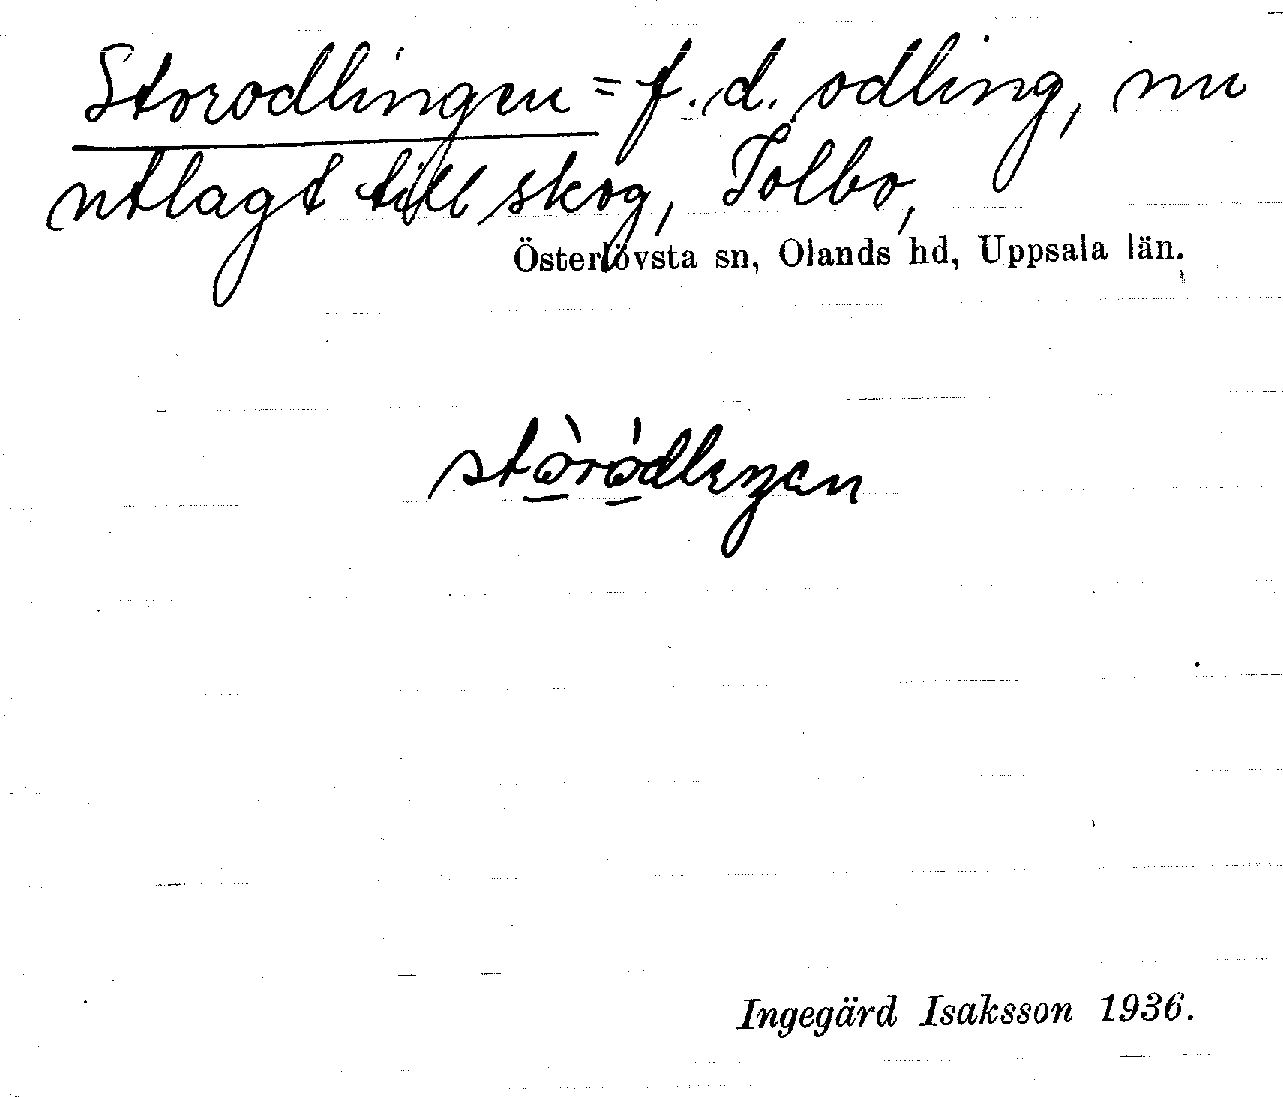 Storodlingen = f.d. odling, nu
utlagt till skog, Tolbo,
Österlövsta sn, Olands hd, Uppsala län.
stò̠ró̠dlıŋen
Ingegärd Isaksson 1936.